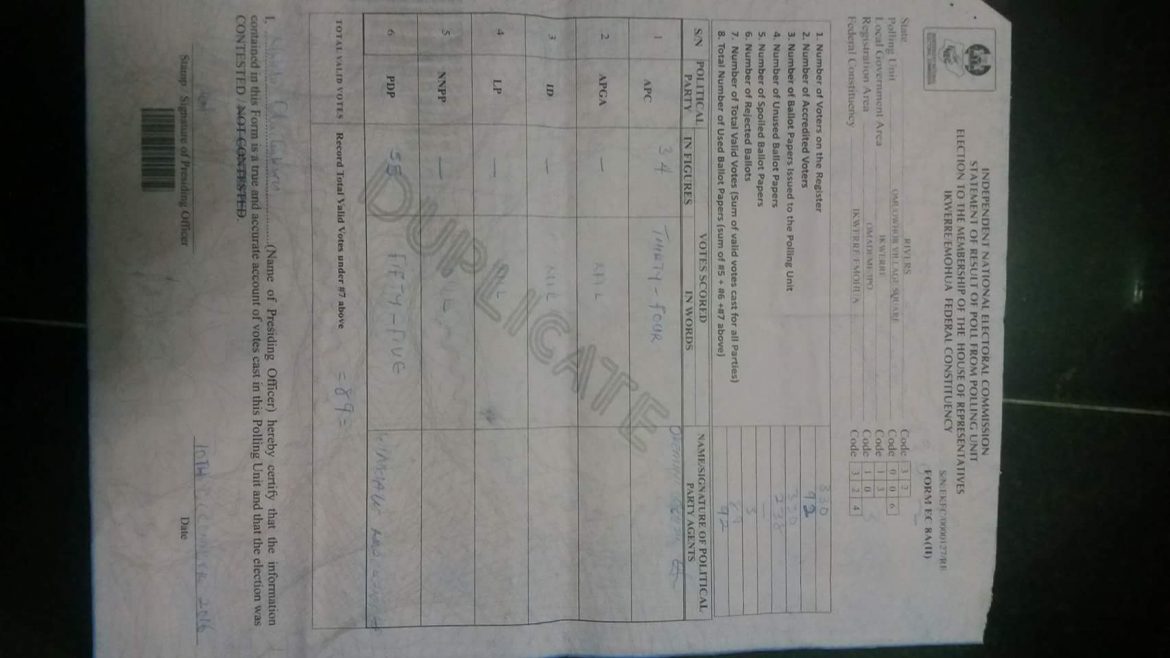 INDEPENDENT NATIONAL ELECTORAL COMMISSION
STATEMENT OF RESULT OF POLL FROM POLLING UNIT
ELECTION TO THE MEMBERSHIP OF THE HOUSE OF REPRESENTATIVES
IKWERRE/EMOHUA FEDERAL CONSTITUENCY
S/N:EKFC/0000127/RE
FORM EC 8A(II)
State RIVERS Code 3 2
Polling Unit OMUOWHOR VILLAGE SQUARE Code 0 0 6
Local Government Area IKWERRE Code 1 3
Registration Area OMADEME/IPO Code 1 0
Federal Constituency IKWERRE/EMOHUA Code 3 2 4
1. Number of Voters on the Register 330
2. Number of Accredited Voters 92
3. Number of Ballot Papers Issued to the Polling Unit 330
4. Number of Unused Ballot Papers 238
5. Number of Spoiled Ballot Papers —
6. Number of Rejected Ballots 3
7. Number of Total Valid Votes (Sum of valid votes cast for all Parties) 89
8. Total Number of Used Ballot Papers (sum of #5 + #6 +#7 above) 92
S/N POLITICAL PARTY IN FIGURES VOTES SCORED IN WORDS NAME/SIGNATURE OF POLITICAL PARTY AGENTS
1 APC 34 THIRTY-FOUR
2 APGA — NIL
3 ID — NIL
4 LP —
5 NNPP —
6 PDP 55 FIFTY-FIVE
DUPLICATE
TOTAL VALID VOTES Record Total Valid Votes under #7 above =89=
I, (Name of Presiding Officer) hereby certify that the information
contained in this Form is a true and accurate account of votes cast in this Polling Unit and that the election was
CONTESTED / NOT CONTESTED.
10TH DECEMBER 2016
Stamp / Signature of Presiding Officer Date